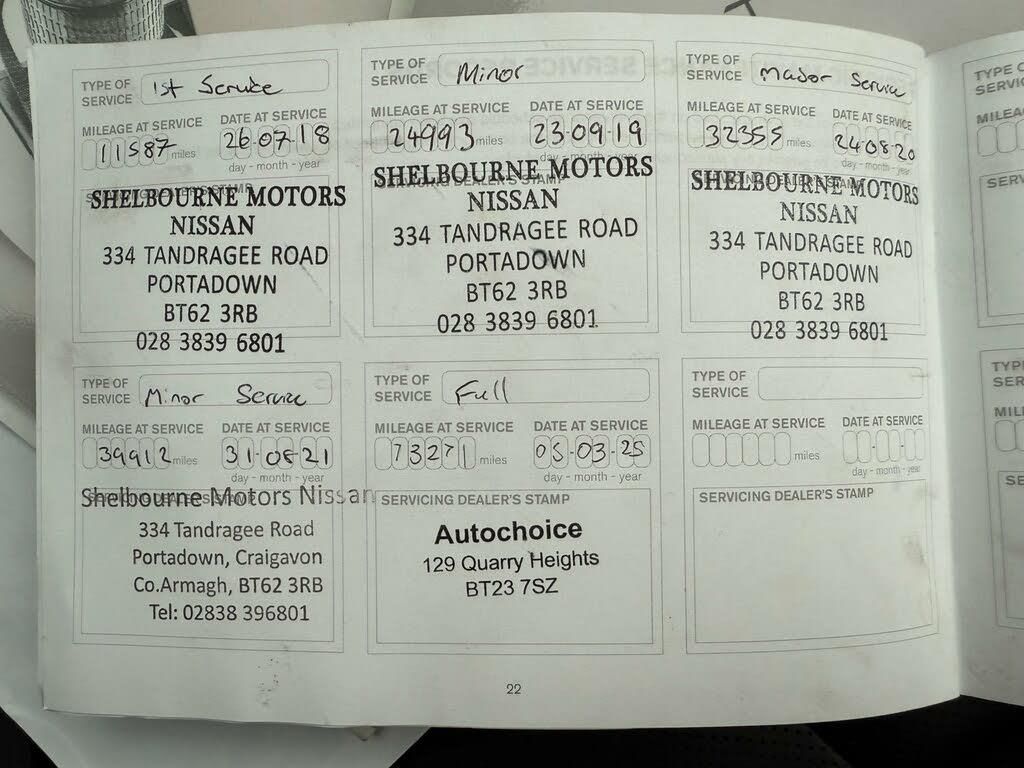 TYPE OF SERVICE 1st Service
MILEAGE AT SERVICE DATE AT SERVICE
11587 miles 26-07-18
day - month - year
SHELBOURNE MOTORS
NISSAN
334 TANDRAGEE ROAD
PORTADOWN
BT62 3RB
028 3839 6801
TYPE OF SERVICE Minor
MILEAGE AT SERVICE DATE AT SERVICE
24993 miles 23-09-19
day - month - year
SERVICING DEALER'S STAMP
SHELBOURNE MOTORS
NISSAN
334 TANDRAGEE ROAD
PORTADOWN
BT62 3RB
028 3839 6801
TYPE OF SERVICE Major Service
MILEAGE AT SERVICE DATE AT SERVICE
32355 miles 24-08-20
day - month - year
SHELBOURNE MOTORS
NISSAN
334 TANDRAGEE ROAD
PORTADOWN
BT62 3RB
028 3839 6801
TYPE OF SERVICE Minor Service
MILEAGE AT SERVICE DATE AT SERVICE
39912 miles 31-08-21
day - month - year
Shelbourne Motors Nissan
334 Tandragee Road
Portadown, Craigavon
Co.Armagh, BT62 3RB
Tel: 02838 396801
TYPE OF SERVICE Full
MILEAGE AT SERVICE DATE AT SERVICE
73271 miles 05-03-25
day - month - year
SERVICING DEALER'S STAMP
Autochoice
129 Quarry Heights
BT23 7SZ
TYPE OF SERVICE
MILEAGE AT SERVICE DATE AT SERVICE
miles
day - month - year
SERVICING DEALER'S STAMP
22